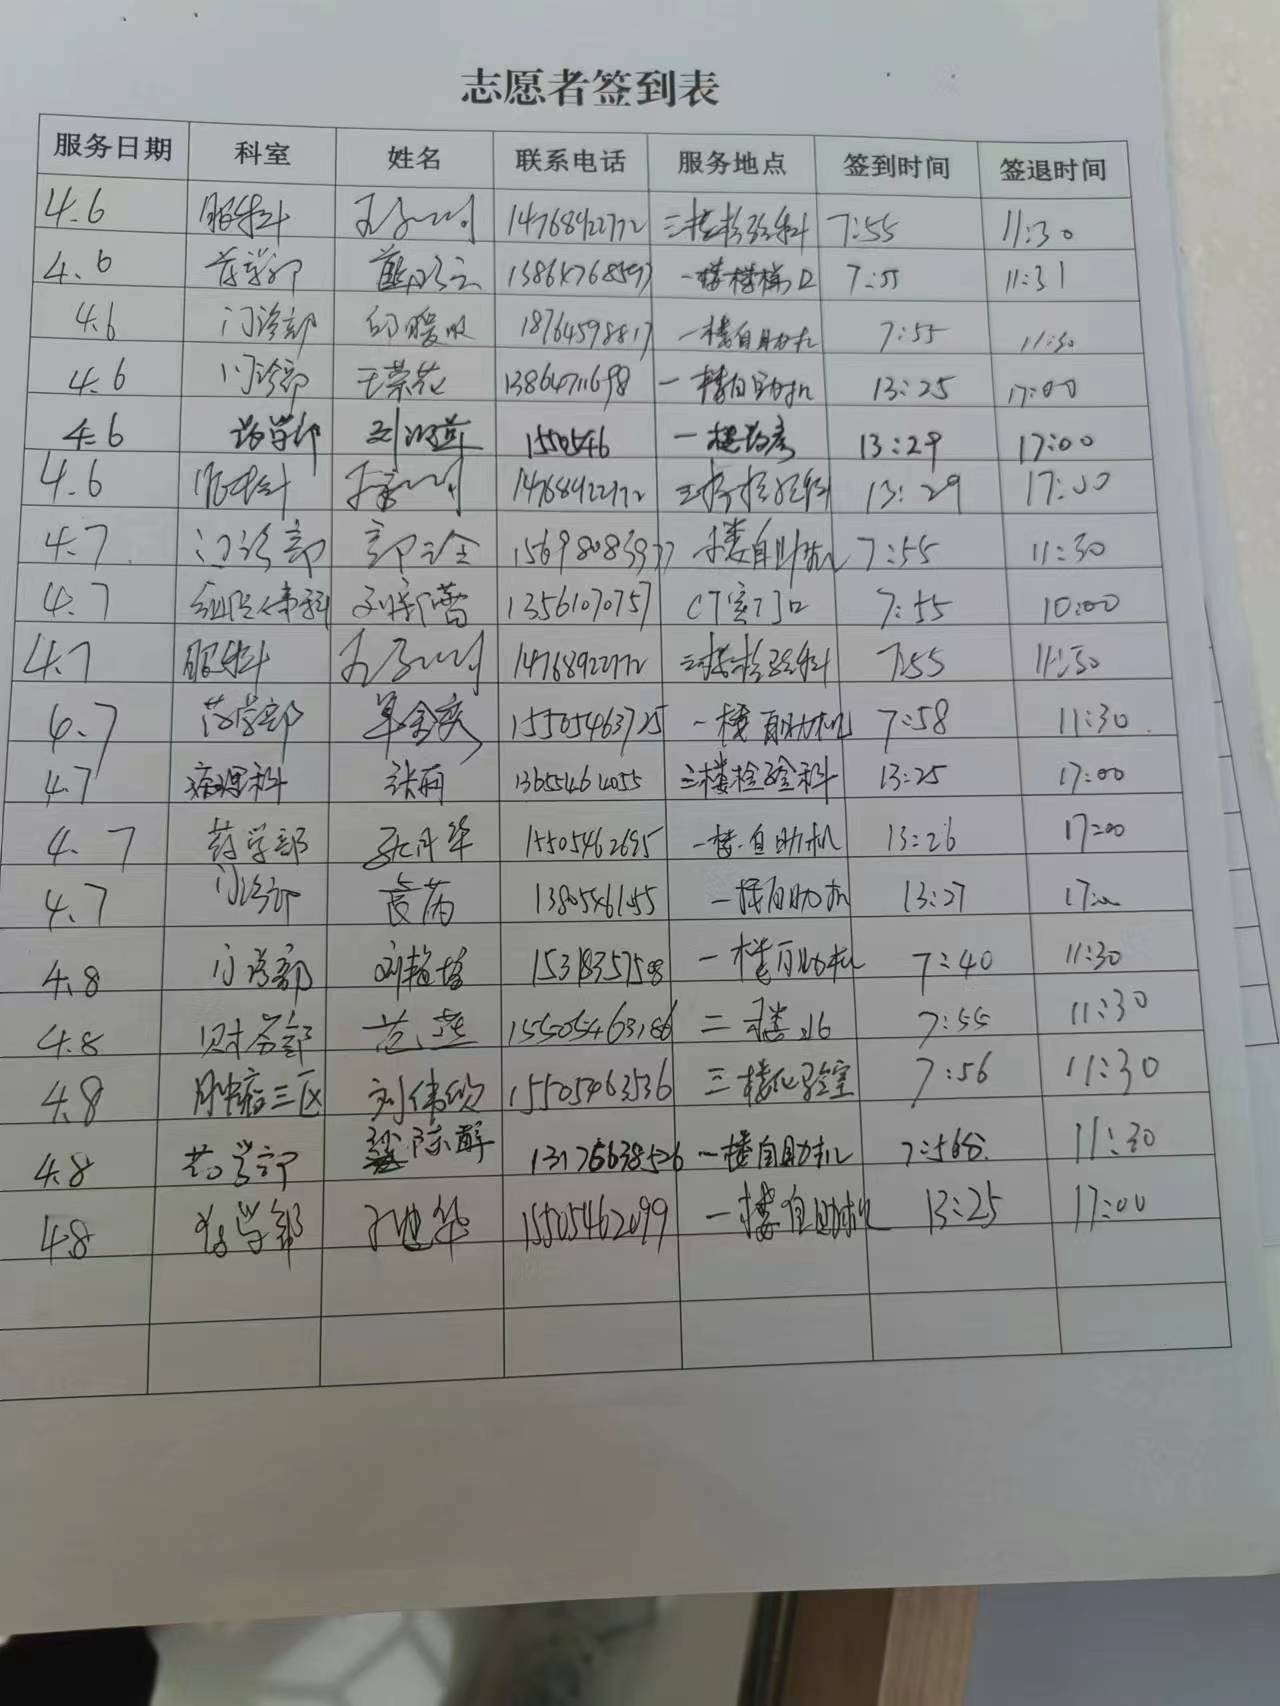 志愿者签到表
服务日期 科室 姓名 联系电话 服务地点 签到时间 签退时间
4.6 眼科 14768922772 三楼检验科 7:55 11:30
4.6 药学部 一楼楼梯口 7:55 11:31
4.6 门诊部 18764598817 一楼自助机 7:55 11:30
4.6 门诊部 王荣花 13864711698 一楼自助机 13:25 17:00
4.6 药学部 1550546 一楼药房 13:29 17:00
4.6 眼科 14768922772 三楼检验科 13:29 17:00
4.7 门诊部 15698083977 一楼自助机 7:55 11:30
4.7 13561070757 CT室门口 7:55 10:00
4.7 眼科 14768922772 三楼检验科 7:55 11:30
4.7 药学部 单金庆 15505463725 一楼自助机 7:58 11:30
4.7 病理科 张雨 13655464055 三楼检验科 13:25 17:00
4.7 药学部 15505462695 一楼自助机 13:26 17:00
4.7 门诊部 一楼自助机 13:27 17:00
4.8 门诊部 15318357508 一楼自助机 7:40 11:30
4.8 财务部 范燕 15505463186 二楼 7:55 11:30
4.8 肿瘤三区 15505463536 三楼化验室 7:56 11:30
4.8 药学部 13176638526 一楼自助机 11:30
4.8 药学部 15505462099 一楼自助机 13:25 17:00